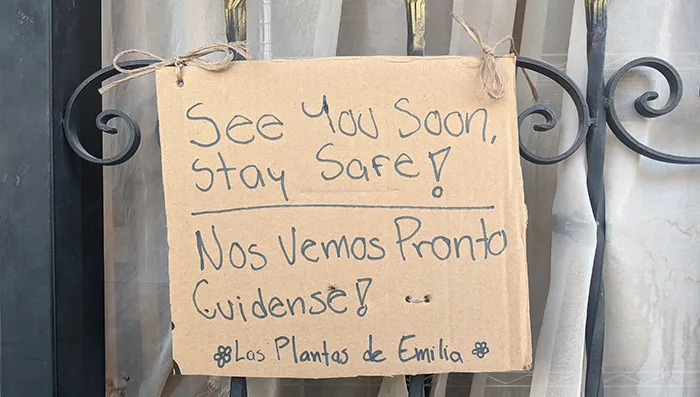 See You Soon,
Stay Safe!
Nos Vemos Pronto
Cuidense!
Las Plantas de Emilia